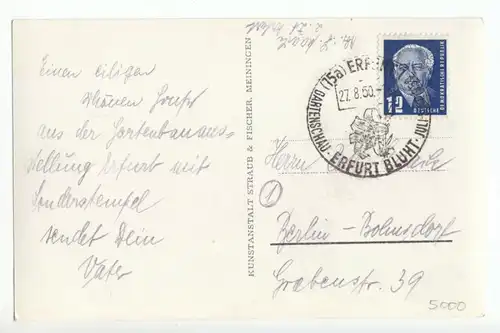 Einen eiligen
schönen Gruß
aus der Gartenbauaus-
stellung Erfurt mit
Sonderstempel
sendet Dein
Vater
KUNSTANSTALT STRAUB & FISCHER, MEININGEN
(15a) ERFURT
27.8.50
GARTENSCHAU · ERFURT BLÜHT · JULI
12
DEUTSCHE
DEMOKRATISCHE REPUBLIK
Herrn
Berlin-Bohnsdorf
Grabenstr. 39
5000